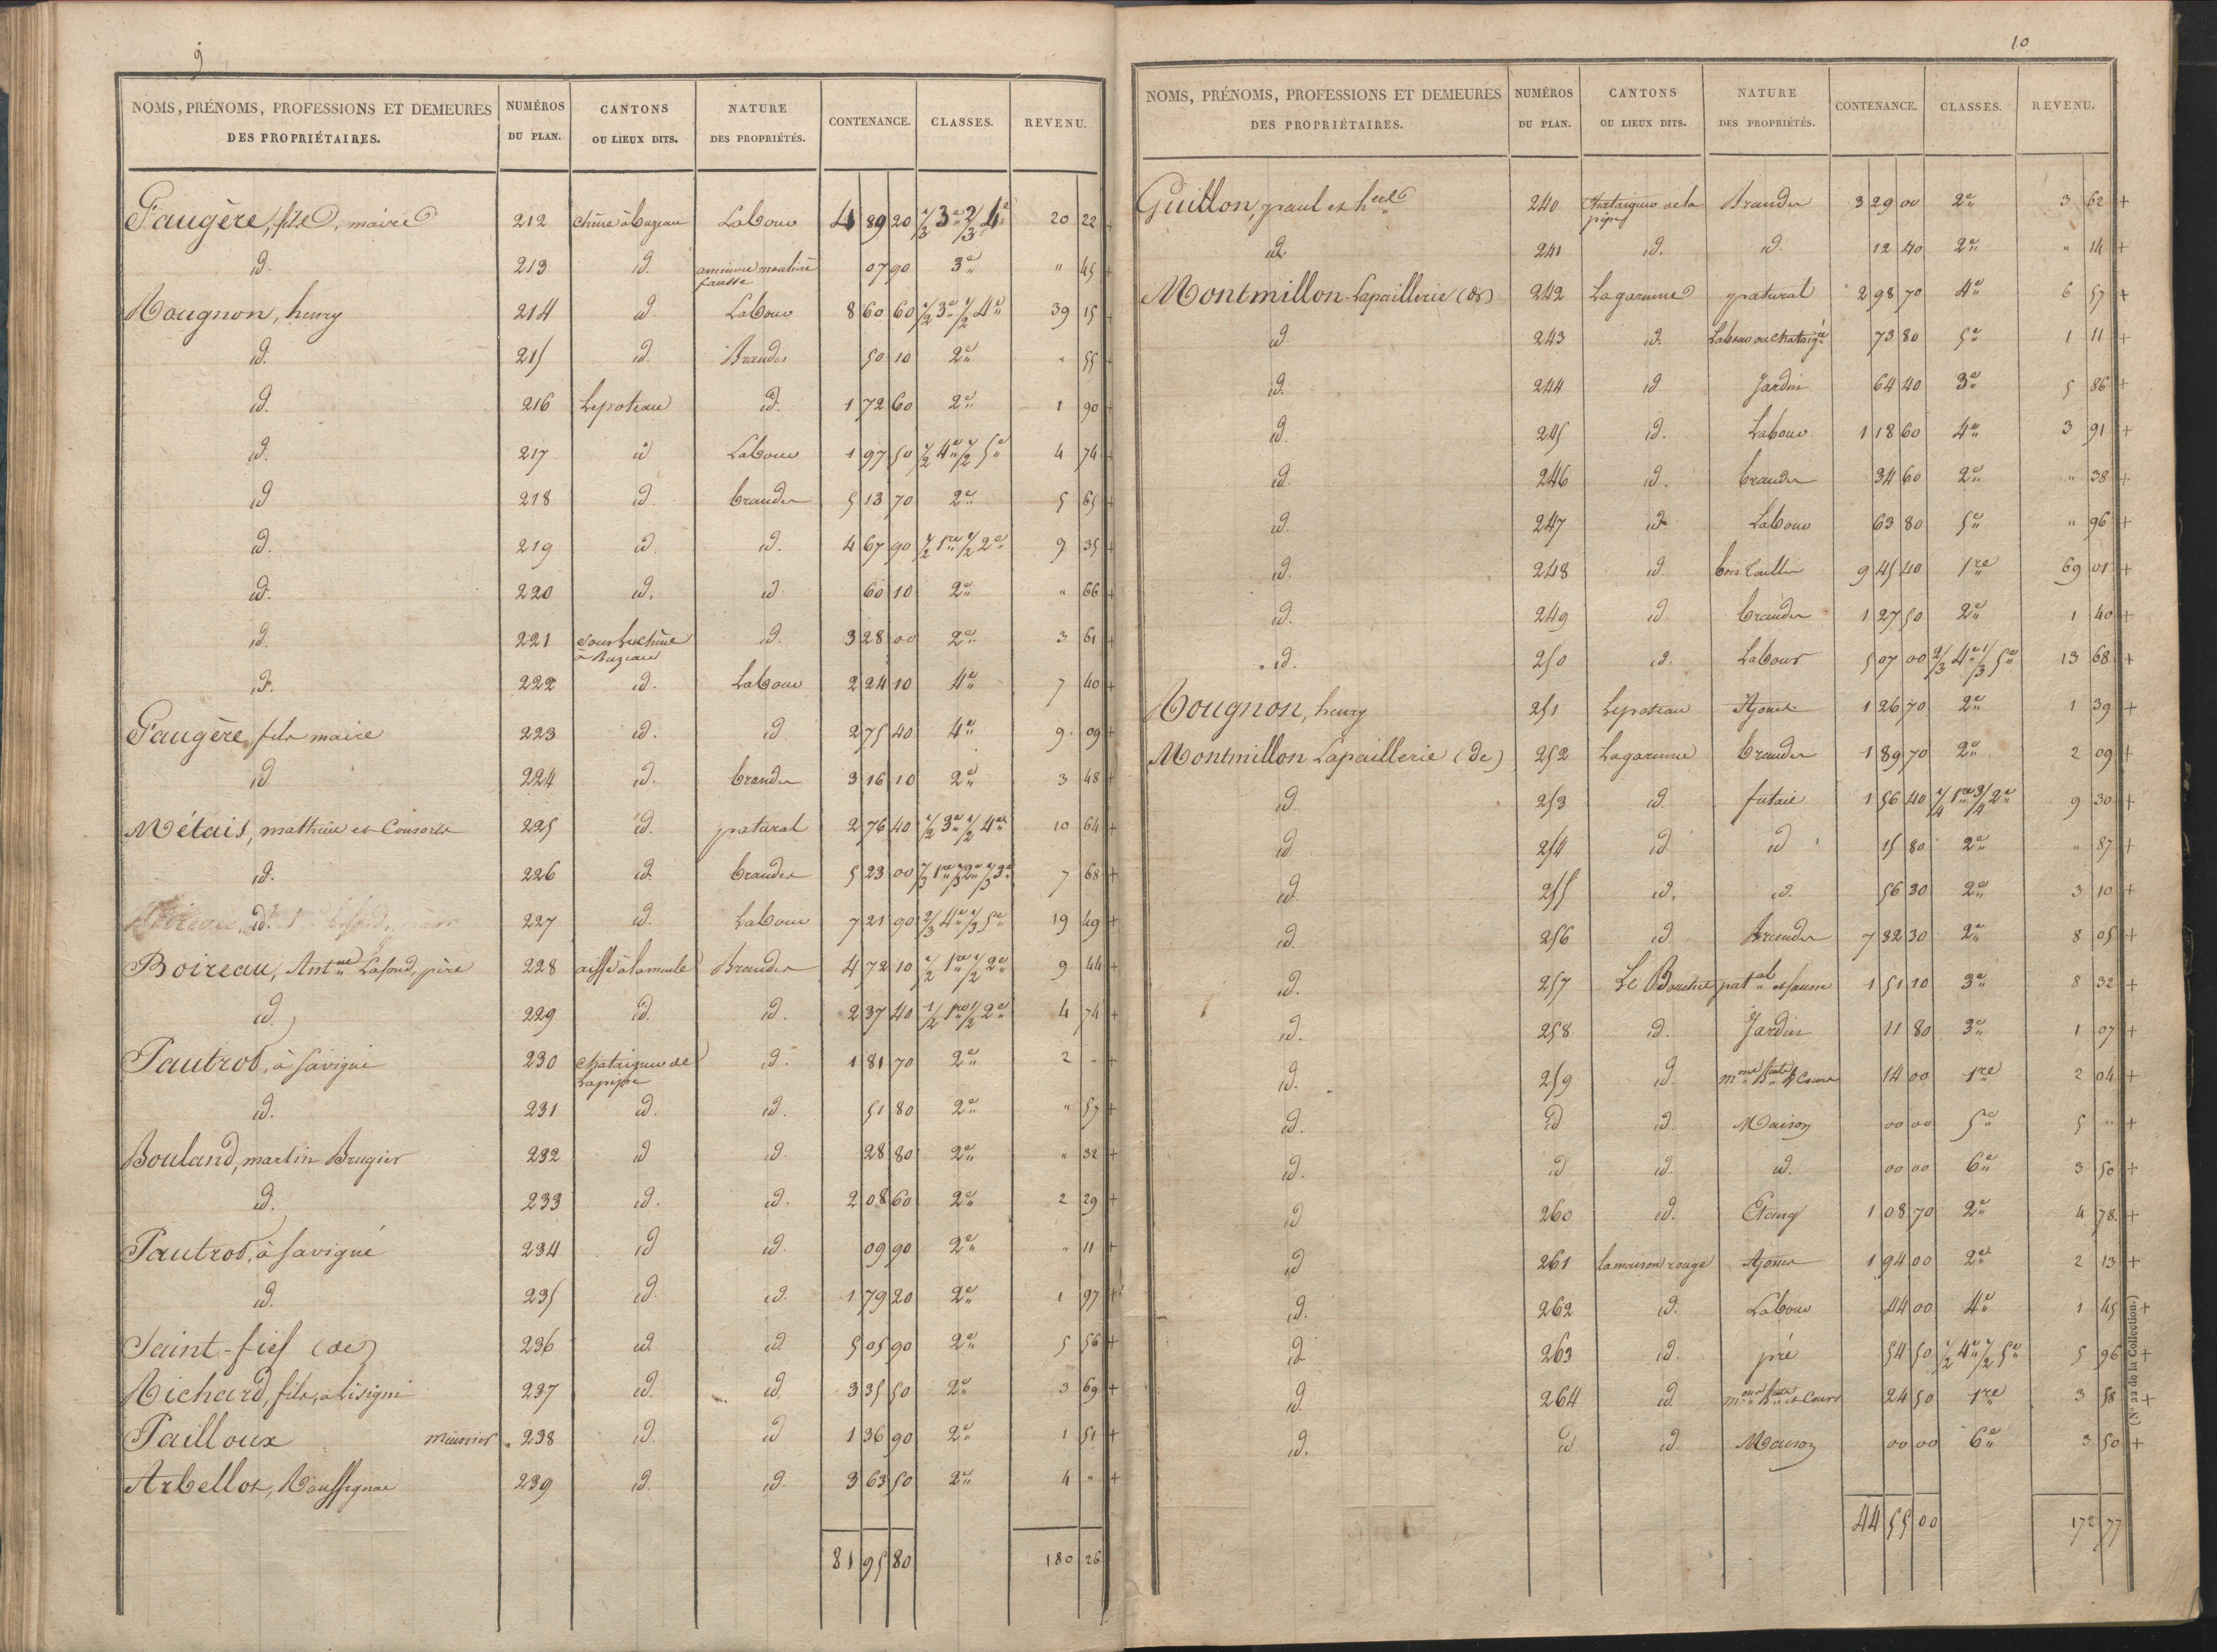 9
NOMS, PRÉNOMS, PROFESSIONS ET DEMEURES DES PROPRIÉTAIRES. NUMÉROS DU PLAN. CANTONS OU LIEUX DITS. NATURE DES PROPRIÉTÉS. CONTENANCE. CLASSES. REVENU.
Faugère, fils, maire 212 Chêne à Buzeau Labour 4 89 20 1/3 3e 2/3 4e 20 22 +
id. 213 id. 07 90 3e " 45 +
fausse
Rougnon, henry 214 id Labour 8 60 60 1/2 3e 1/2 4e 39 15 +
id. 215 id. Brandes 50 10 2e " 55 +
id. 216 Lepoteau id. 1 72 60 2e 1 90 +
id. 217 id Labour 1 97 50 1/2 4e 1/2 5e 4 74 +
id 218 id. brandes 5 13 70 2e 5 65 +
id. 219 id. id. 4 67 90 1/2 1re 1/2 2e 9 35 +
id. 220 id. id 60 10 2e " 66 +
id. 221 Sous Lechêne à Buzeau id. 3 28 00 2e 3 61 +
id. 222 id. Labour 2 24 10 4e 7 40 +
Faugère, fils maire 223 id. id. 2 75 40 4e 9 09 +
id 224 id. brandes 3 16 10 2e 3 48 +
Métais, mathieu et Consorts 225 id. patural 2 76 40 1/2 3e 1/2 4e 10 64 +
id. 226 id. brandes 5 23 00 1/3 1re 1/3 2e 1/3 3e 7 68 +
id. 227 id. Labour 7 21 90 2/3 4e 1/3 5e 19 49 +
Boireau, Antne Lafond, père 228 aiffe à lamule Brandes 4 72 10 1/2 1re 1/2 2e 9 44 +
id. 229 id. id. 2 37 40 1/2 1re 1/2 2e 4 74 +
Pautrot, à Savigné 230 Chataigner de Lapipe id. 1 81 70 2e 2 " +
id. 231 id. id. 51 80 2e " 57 +
Bouland, martin Brugier 232 id id. 28 80 2e " 32 +
id. 233 id. id. 2 08 60 2e 2 29 +
Pautrot, à Savigné 234 id id. 09 90 2e " 11 +
id. 235 id. id. 1 79 20 2e 1 97 +
Saint-fief (de) 236 id. id 5 05 90 2e 5 56 +
Richard, fils, à Lisigni 237 id. id. 3 35 50 2e 3 69 +
Pailloux meunier 238 id. id 1 36 90 2e 1 51 +
Arbellot, Rouffignac 239 id. id. 3 63 50 2e 4 " +
81 95 80 180 26
10
NOMS, PRÉNOMS, PROFESSIONS ET DEMEURES DES PROPRIÉTAIRES. NUMÉROS DU PLAN. CANTONS OU LIEUX DITS. NATURE DES PROPRIÉTÉS. CONTENANCE. CLASSES. REVENU.
Guillon, paul et 240 Chataigner de la pipe Brandes 3 29 00 2e 3 62 +
id. 241 id. id. 12 40 2e " 14 +
Montmillon-Lapaillerie (de) 242 Lagarenne patural 2 98 70 4e 6 57 +
id. 243 id. Labour ou Chataigr 73 80 5e 1 11 +
id. 244 id. Jardin 64 40 3e 5 86 +
id. 245 id. Labour 1 18 60 4e 3 91 +
id. 246 id. brandes 34 60 2e " 38 +
id. 247 id. Labour 63 80 5e " 96 +
id. 248 id. bois taillis 9 45 40 1re 69 01 +
id. 249 id. brandes 1 27 50 2e 1 40 +
id. 250 id. Labour 5 07 00 2/3 4e 1/3 5e 13 68 +
Rougnon, henry 251 Lepoteau Ajoncs 1 26 70 2e 1 39 +
Montmillon Lapaillerie (de) 252 Lagarenne brandes 1 89 70 2e 2 09 +
id. 253 id. futaie 1 56 40 1/4 1re 3/4 2e 9 30 +
id 254 id. id 15 80 2e " 87 +
id. 255 id. id. 56 30 2e 3 10 +
id. 256 id. Brandes 7 32 30 2e 8 05 +
id. 257 Le Bouchet patal et fausse 1 51 10 3e 8 32 +
id. 258 id. Jardin 11 80 3e 1 07 +
id. 259 id. 14 00 1re 2 04 +
id. id id. Maison 00 00 5e 5 " +
id. id id. id. 00 00 6e 3 50 +
id 260 id. Etang 1 08 70 2e 4 78 +
id 261 Lamaison rouge Ajoncs 1 94 00 2e 2 13 +
id. 262 id. Labour 44 00 4e 1 45 +
id. 263 id. pré 54 50 1/2 4e 1/2 5e 5 96 +
id. 264 id. 24 50 1re 3 58 +
id. id id. Maison 00 00 6e 3 50 +
44 55 00 172 77
(N° 22 de la Collection.)